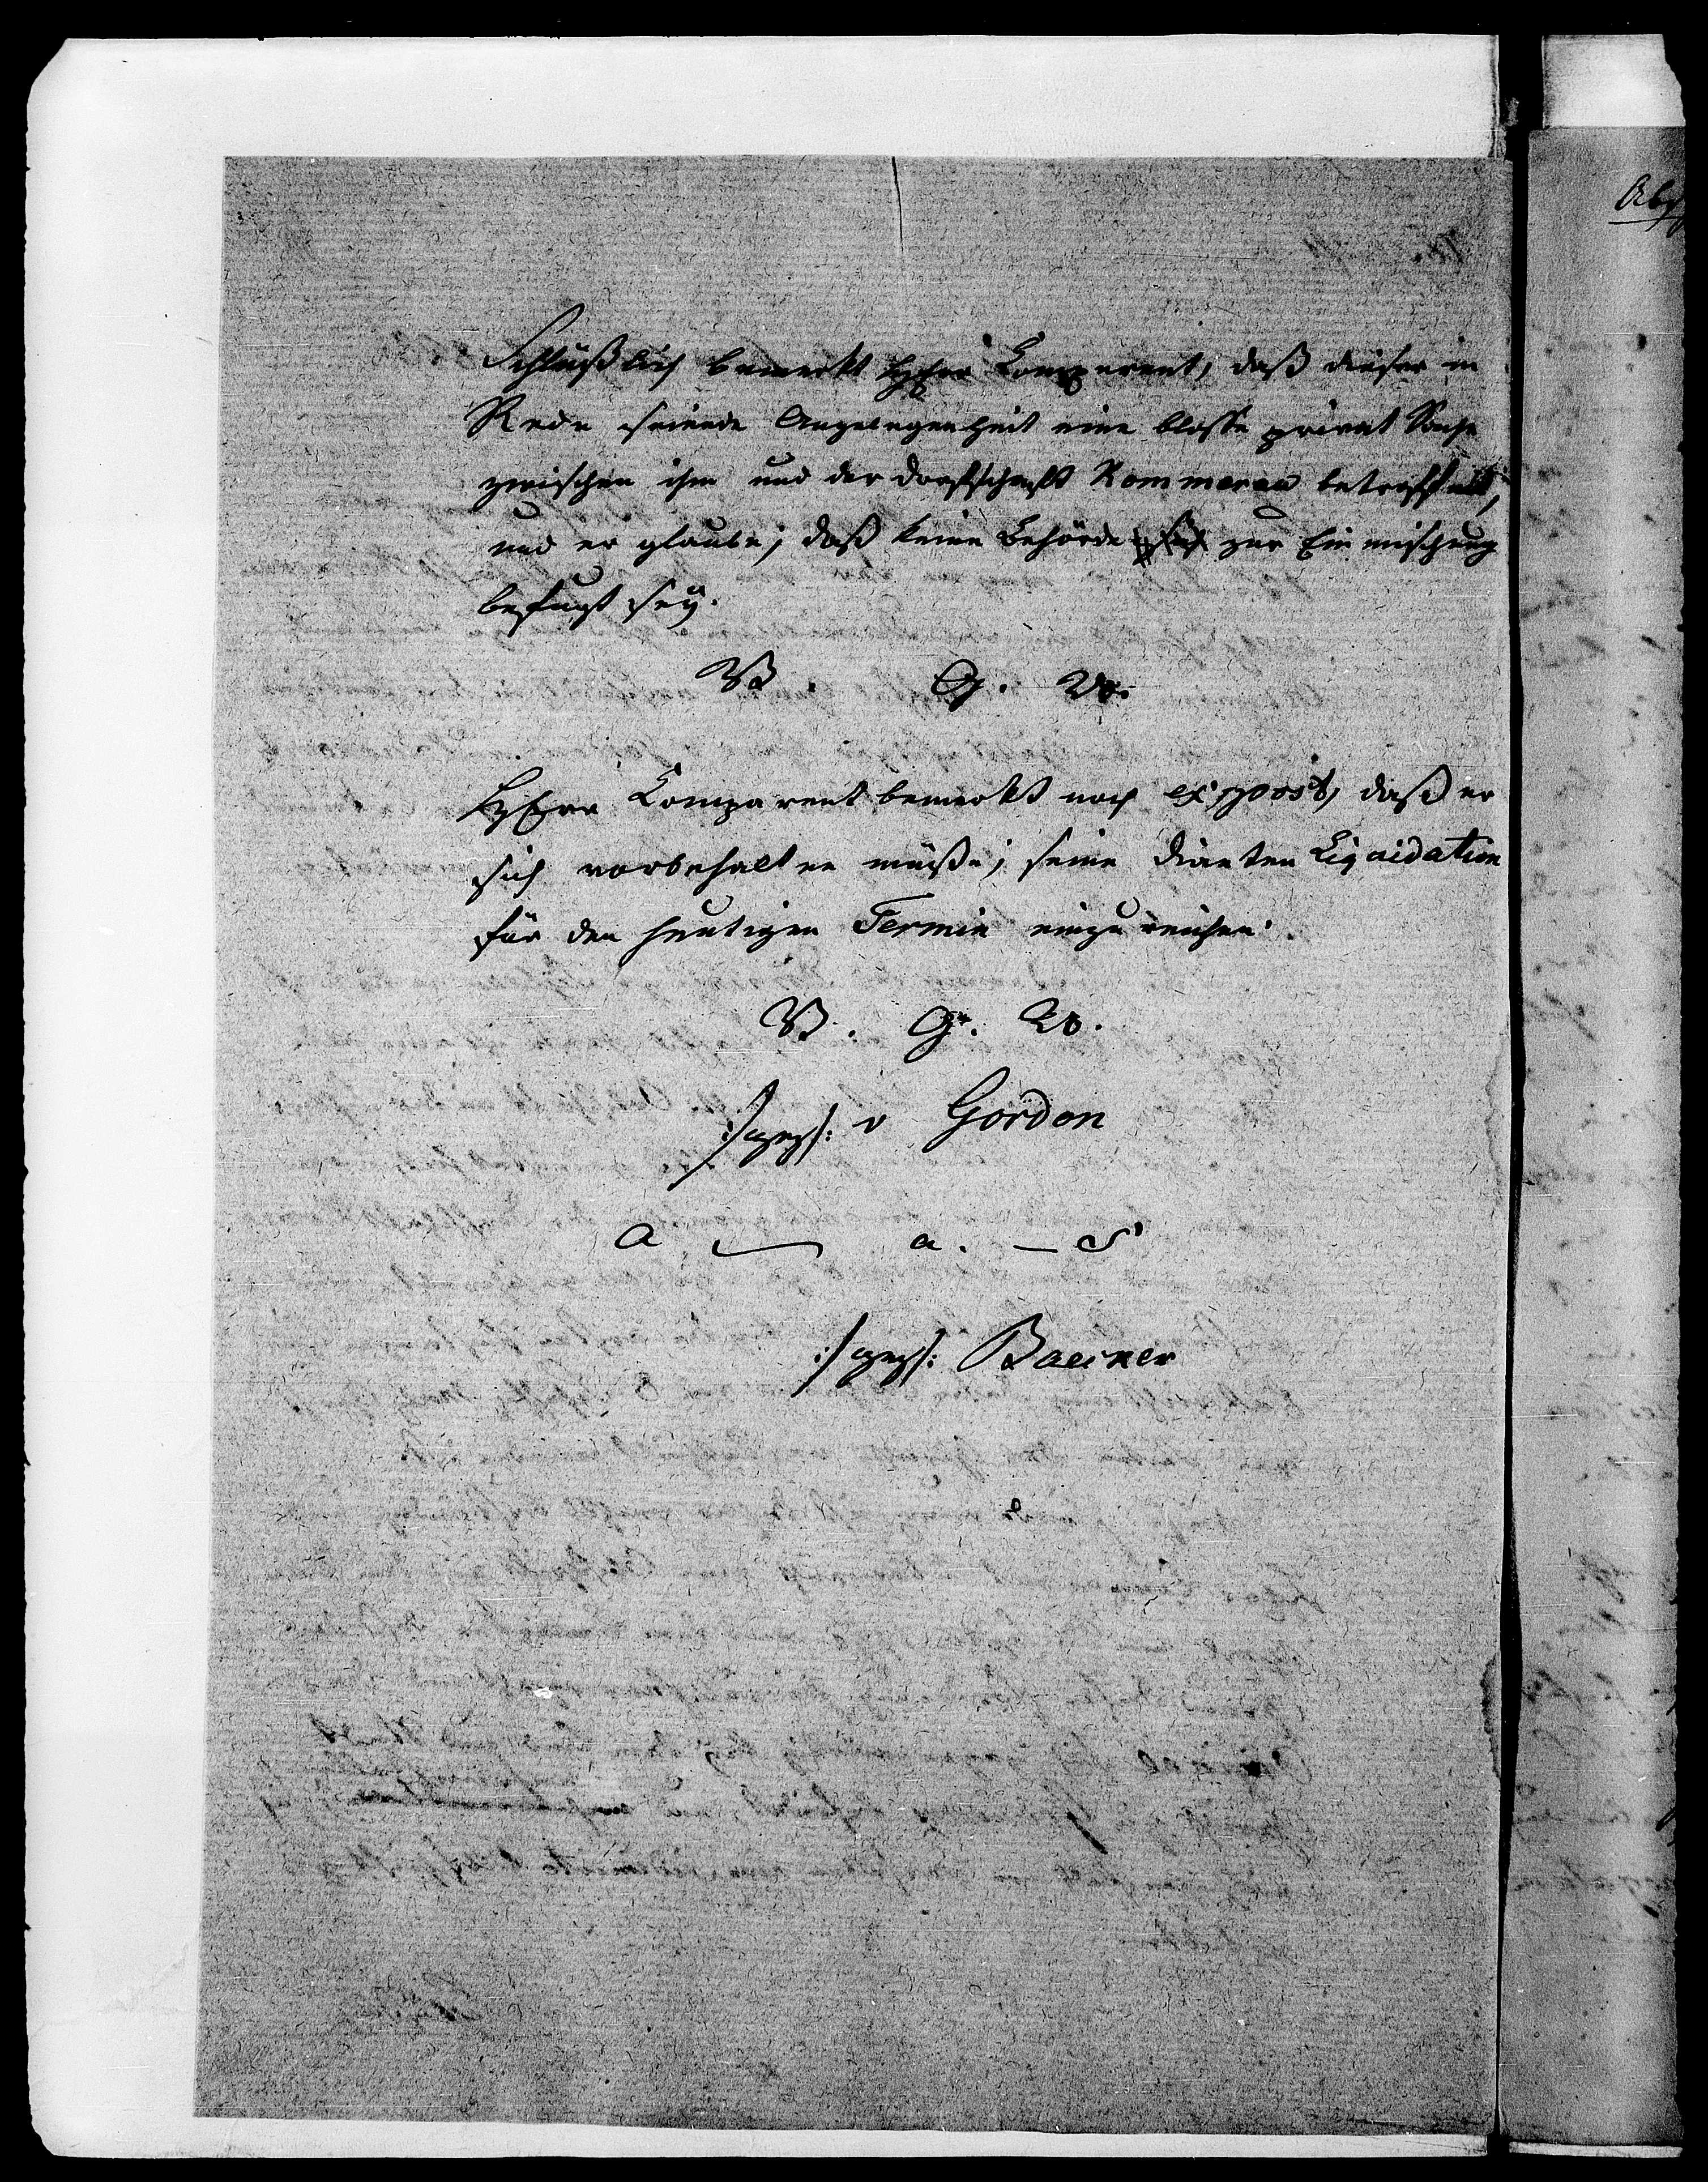 Schlüßlich bemerkt Herr Comparent, daß diese in
Rede seiende Angelegenheit eine blosse privat Sache
zwischen ihm und der Dorfschaft Kommerau betreffend,
und er glaube, daß keine Behörde sich zur Einmischung
befugt sey.
V. G. U.
Herr Comparent bemerkt noch ex post, daß er
sich vorbehalten müße, seine Diaeten Liquidation
für den heutigen Termin einzureichen.
V. G. U.
:/gez/: v Gordon
a. — a. — s
:/gez/: Baecker